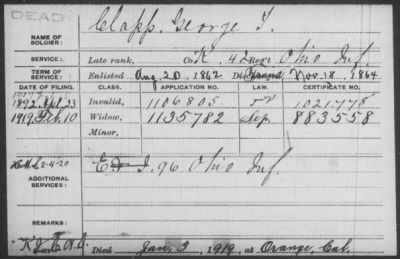 DEAD
Clapp, George T.
NAME OF SOLDIER:
SERVICE: Late rank, Co. K, 42 Reg't Ohio Inf.
TERM OF SERVICE: Enlisted Aug. 20, 1862 Nov. 18, 1864
DATE OF FILING. CLASS. APPLICATION NO. LAW. CERTIFICATE NO.
1892 Apl. 23 Invalid, 1106805 1021778
1919 Feb. 10 Widow, 1135782 Sep. 883558
Minor,
2-4-20
ADDITIONAL SERVICES: I. 96 Ohio Inf.
REMARKS:
Died Jan. 3, 1919, at Orange, Cal.